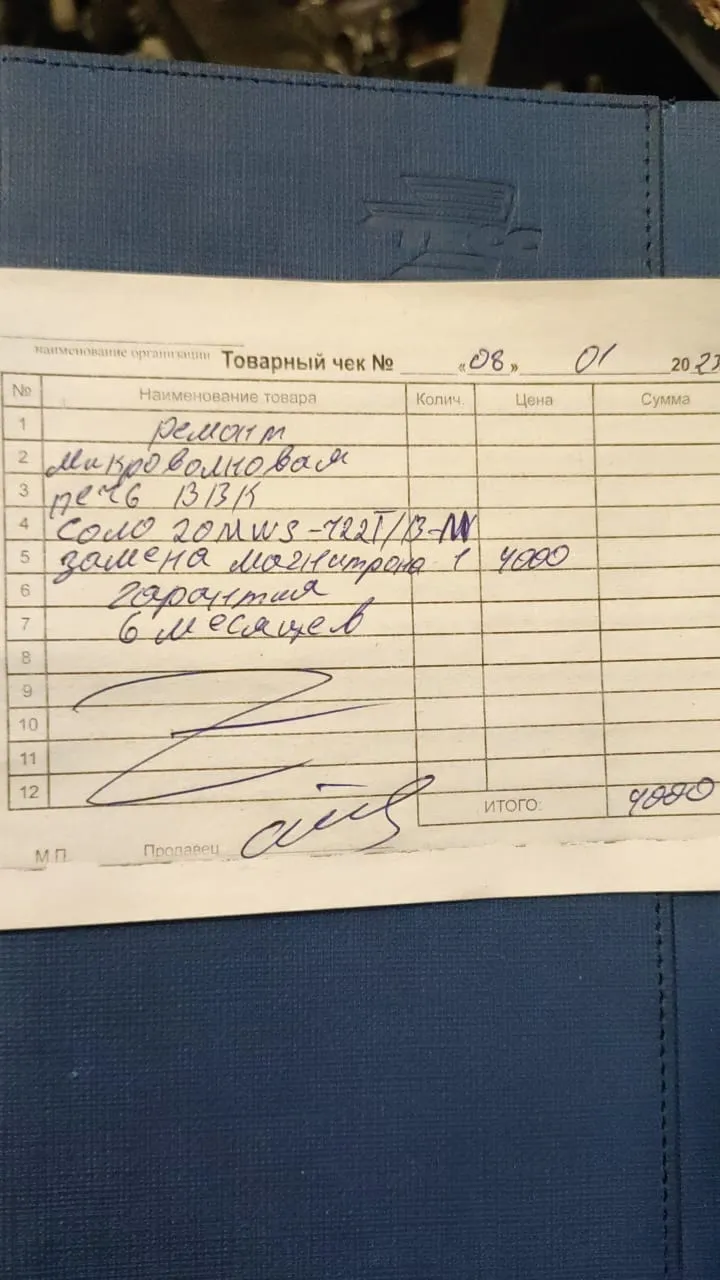 наименование организации Товарный чек № «08» 01 2023
№ Наименование товара Колич. Цена Сумма
1 ремонт
2 микроволновая
3 печь BBK
4 соло 20MWS-722T/B-M
5 замена магнитрона 1 4000
6 гарантия
7 6 месяцев
8
9
10
11
12
ИТОГО: 4000
М.П. Продавец